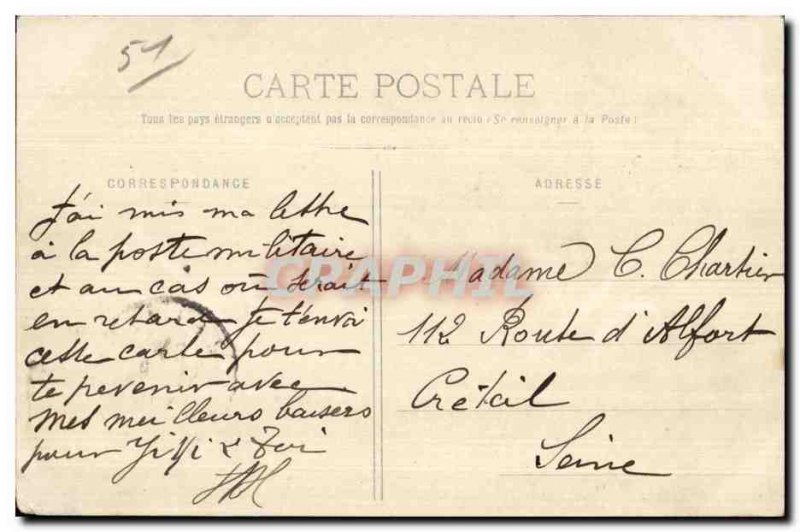 51
CARTE POSTALE
Tous les pays étrangers n'acceptent pas la correspondance au recto (Se renseigner à la Poste)
CORRESPONDANCE
J'ai mis ma lettre
à la poste militaire
et au cas où serait
en retard je t'envoi
cette carte pour
te prevenir avec
mes meilleurs baisers
pour & Toi
ADRESSE
Madame C. Chartier
112 Route d'Alfort
Créteil
Seine
CARTAPHIL